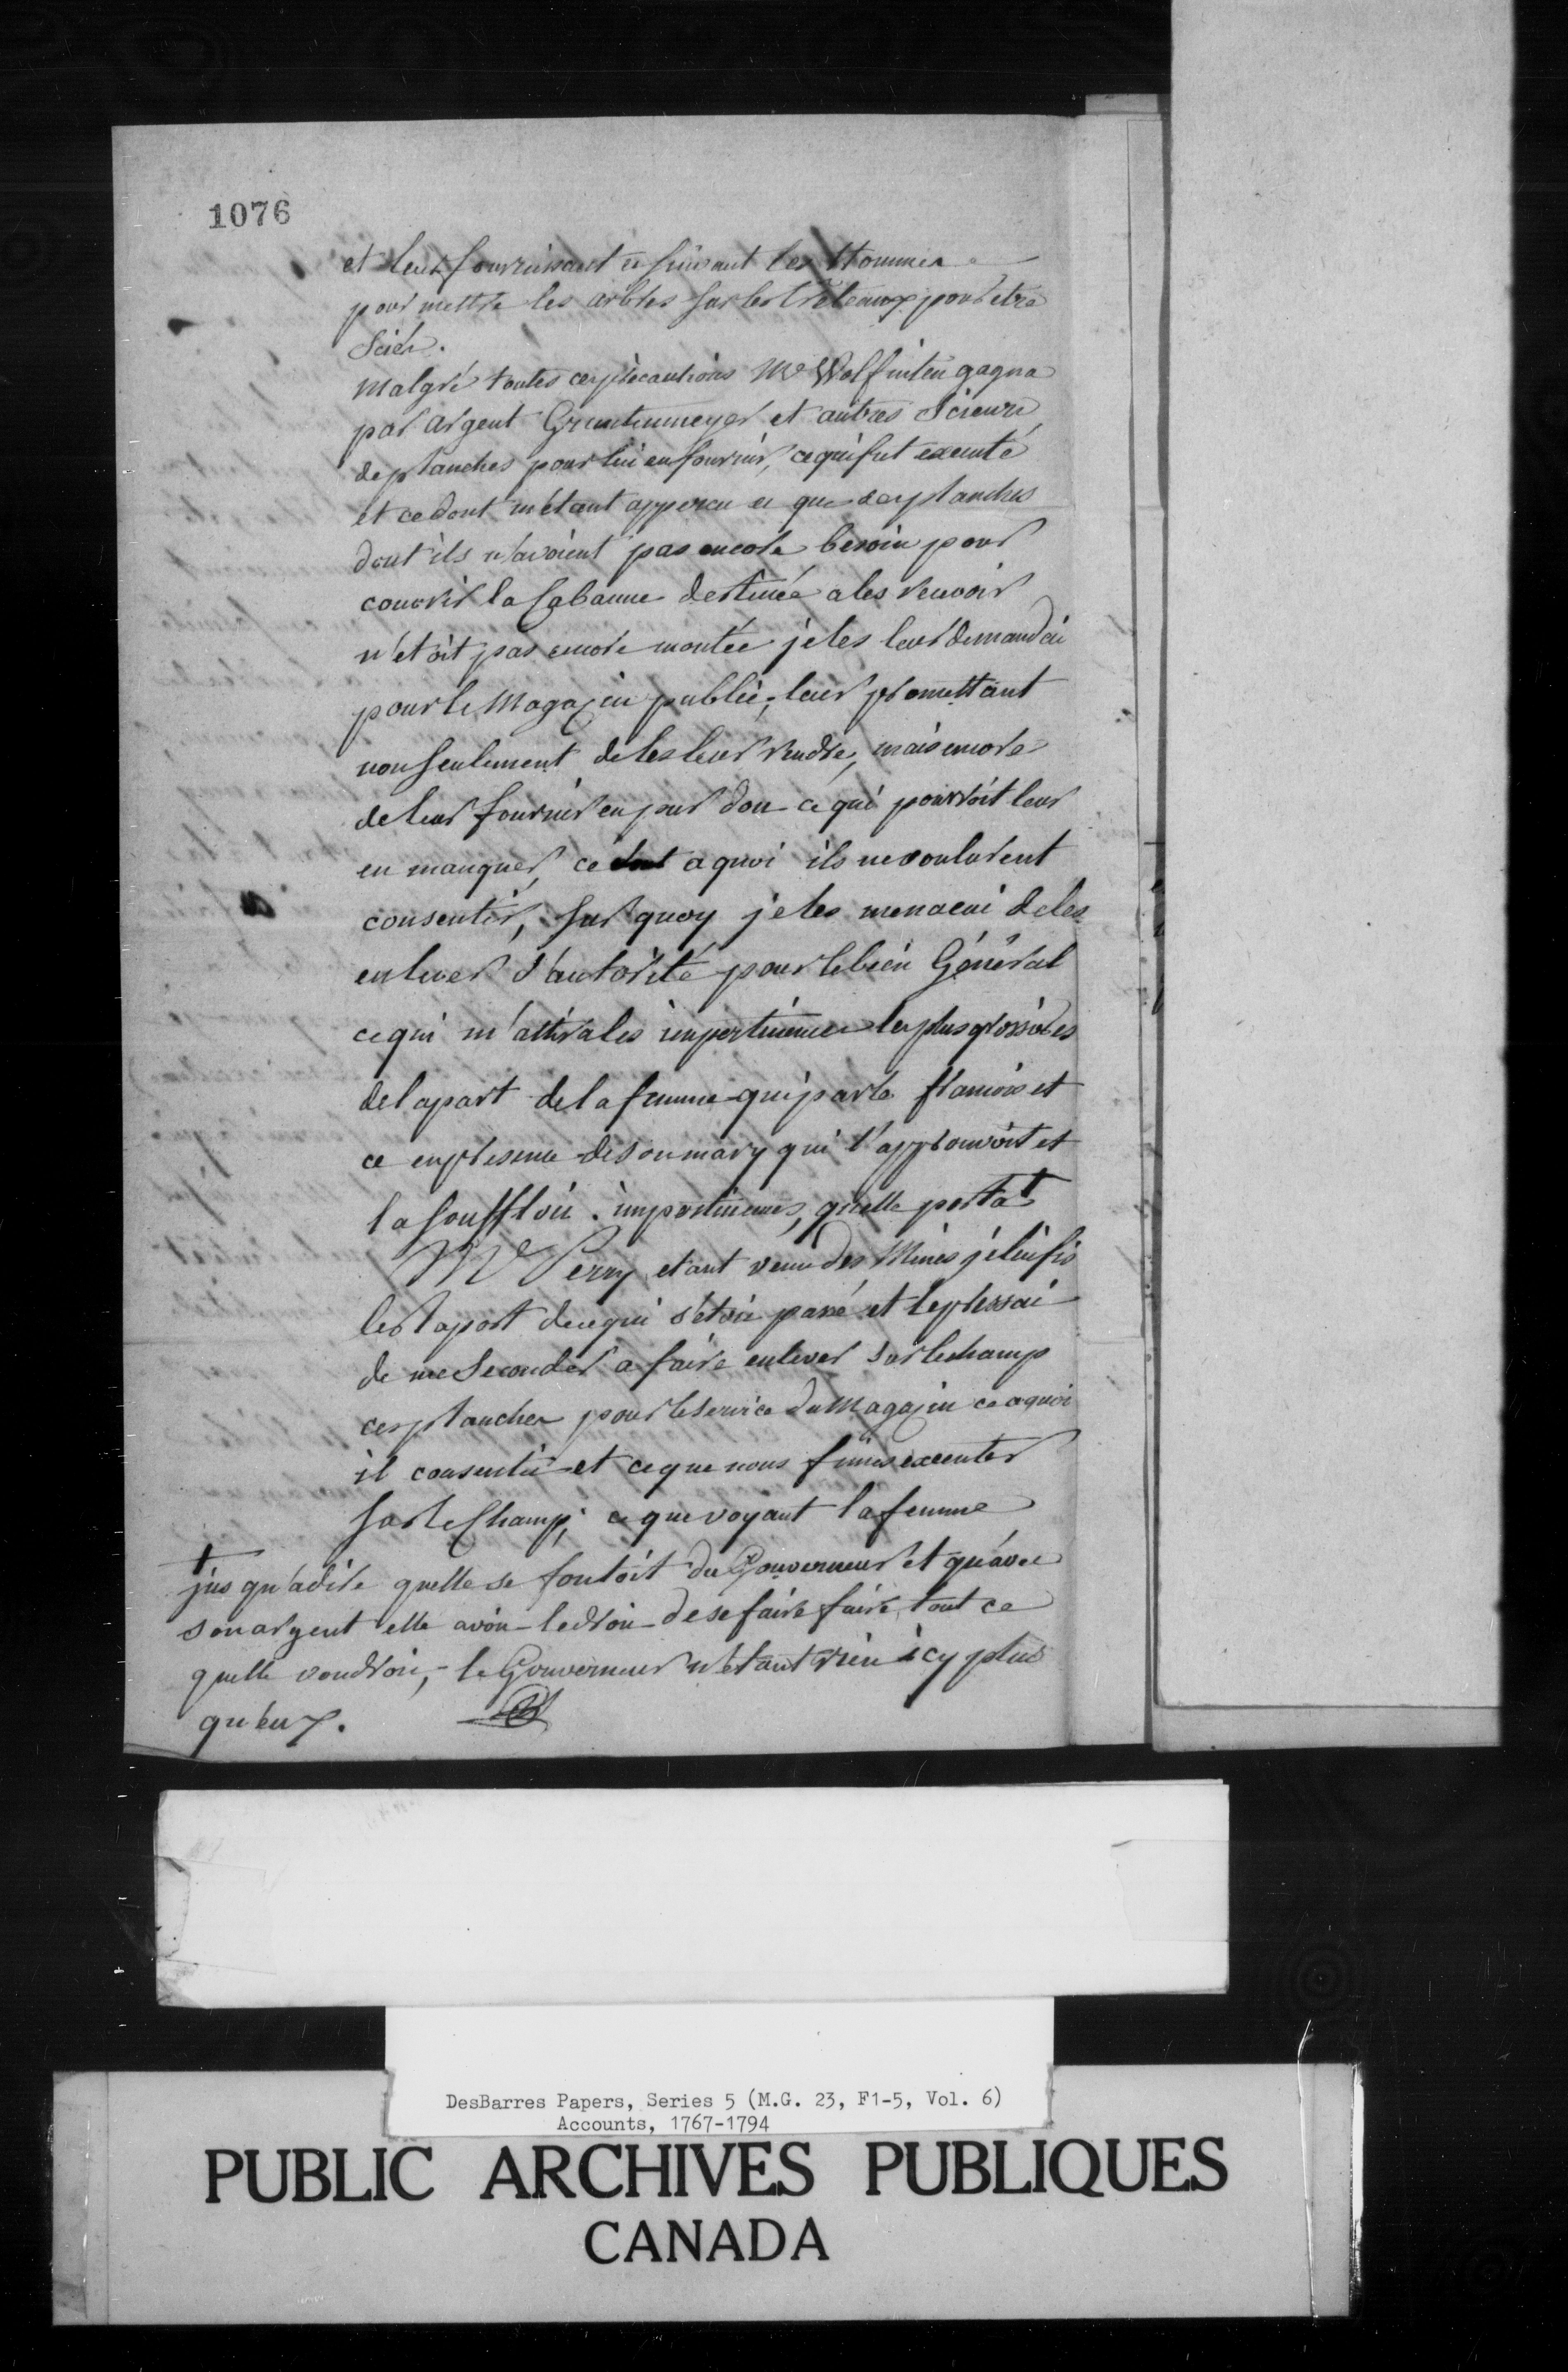 1076
et leur fournissant et suivant les Hommes
pour mettre les arbres sur les treteaux pour etre
Sciés.
Malgré toutes ces précautions Mr Wolf
gagna
par argent et autres Scieurs
de planches pour lui en fournir, ce qui fut executé
et ce dont m'étant apperçu et que ces planches
dont ils n'avoient pas encore besoin pour
couvrir la Cabanne destinée a les recevoir
n'etoit pas encore montée je les leur demandai
pour le Magazin public, leur promettant
non seulement de les leur rendre, mais encore
de leur fournir en pur don ce qui pourroit leur
en manquer, ce a quoi ils ne voulurent
consentir, sur quoy je les menaçai de les
enlever d'autorité pour le bien Général
ce qui m'attira les impertinences les plus grossieres
de la part de la femme qui parle françois et
ce en presence de son mary qui l'approuvoit et
la souffloit. impertinences, quelle porta †
Mr Perry etant venu des Mines je lui fis
le raport de ce qui s'etoit passé et le pressai
de me Seconder a faire enlever sur le champ
ces planches pour le service du Magazin ce a quoi
il consentit et ce que nous fimes executer
sur le Champ; ce que voyant la femme
† jus qu'a dire quelle se foutoit du Gouverneur et qu'avec
son argent elle avoit le droit de se faire faire tout ce
quelle voudroit, le Gouverneur n'etant rien icy plus
qu'eux.
DesBarres Papers, Series 5 (M.G. 23, F1-5, Vol. 6)
Accounts, 1767-1794
PUBLIC ARCHIVES PUBLIQUES
CANADA